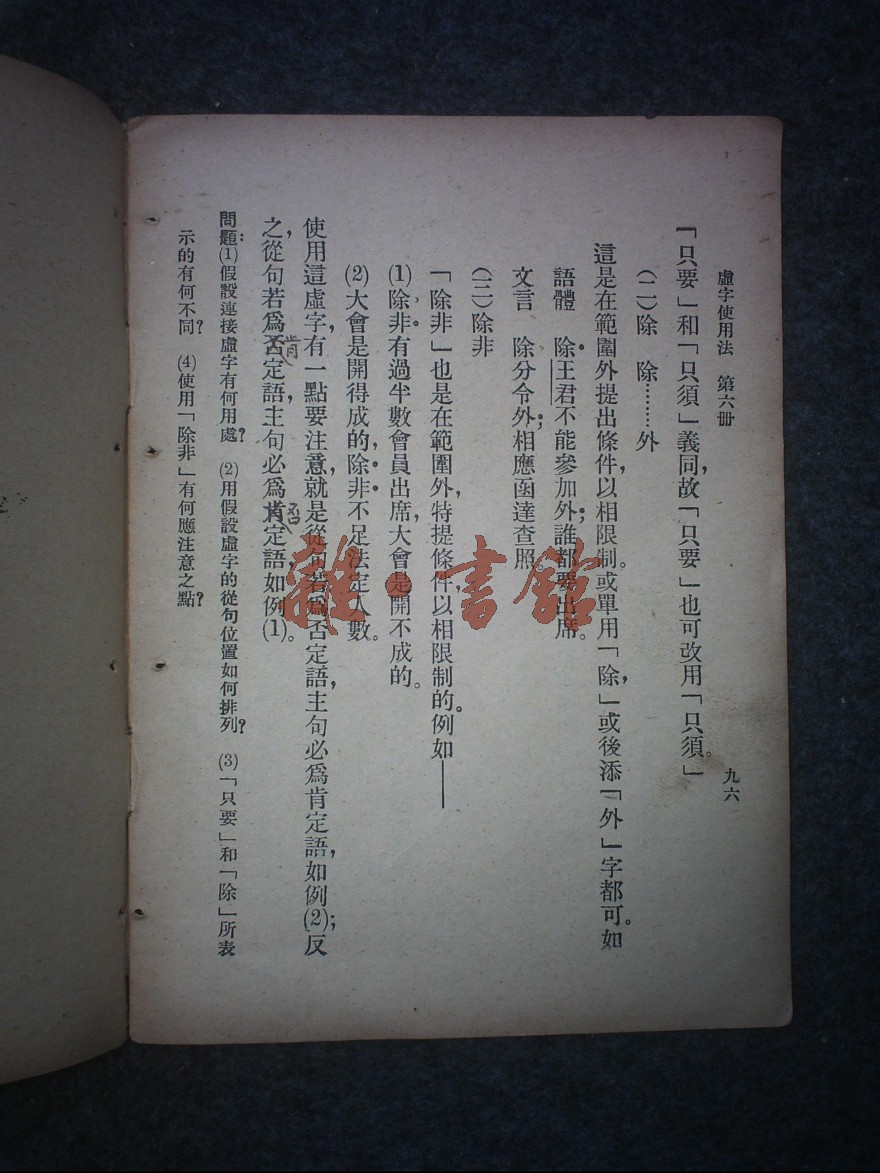 虛字使用法　第六冊　九六
「只要」和「只須」義同，故「只要」也可改用「只須。」
(二)除　除………外
這是在範圍外提出條件，以相限制。或單用「除，」或後添「外」字都可。如
語體　除王君不能參加外；誰都要出席。
文言　除分令外；相應函達查照。
(三)除非
「除非」也是在範圍外，特提條件，以相限制的。例如——
(1)除非有過半數會員出席，大會是開不成的。
(2)大會是開得成的，除非不足法定人數。
使用這虛字，有一點要注意，就是從句若爲否定語，主句必爲肯定語，如例(2)；反
之，從句若爲否定語，主句必爲肯定語，如例(1)。
肯
否
問題：(1)假設連接虛字有何用處？　(2)用假設虛字的從句位置如何排列？　(3)「只要」和「除」所表
示的有何不同？　(4)使用「除非」有何應注意之點？
雜·書館